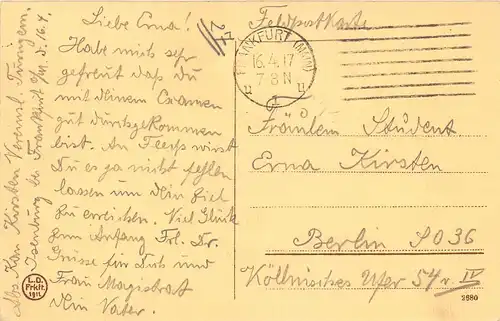 Liebe Erna!
Habe mich sehr
gefreut daß du
mit deinem Examen
gut durchgekommen
bist. An Fleiß wirst
Du es ja nicht fehlen
lassen um dein Ziel
zu erreichen. Viel Glück
zum Anfang Frl. Dr.
Grüsse für Dich und
Frau Magistrat
dein Vater.
Abs. Kirsten
Isenburg bei Frankfurt a/M. d. 16.4.
Feldpostkarte
FRANKFURT (MAIN)
16.4.17
7-8 N
Fräulein Student
Erna Kirsten
Berlin SO 36
Köllnisches Ufer 54 r. IV
L.D.
Frkft.
1911
2680